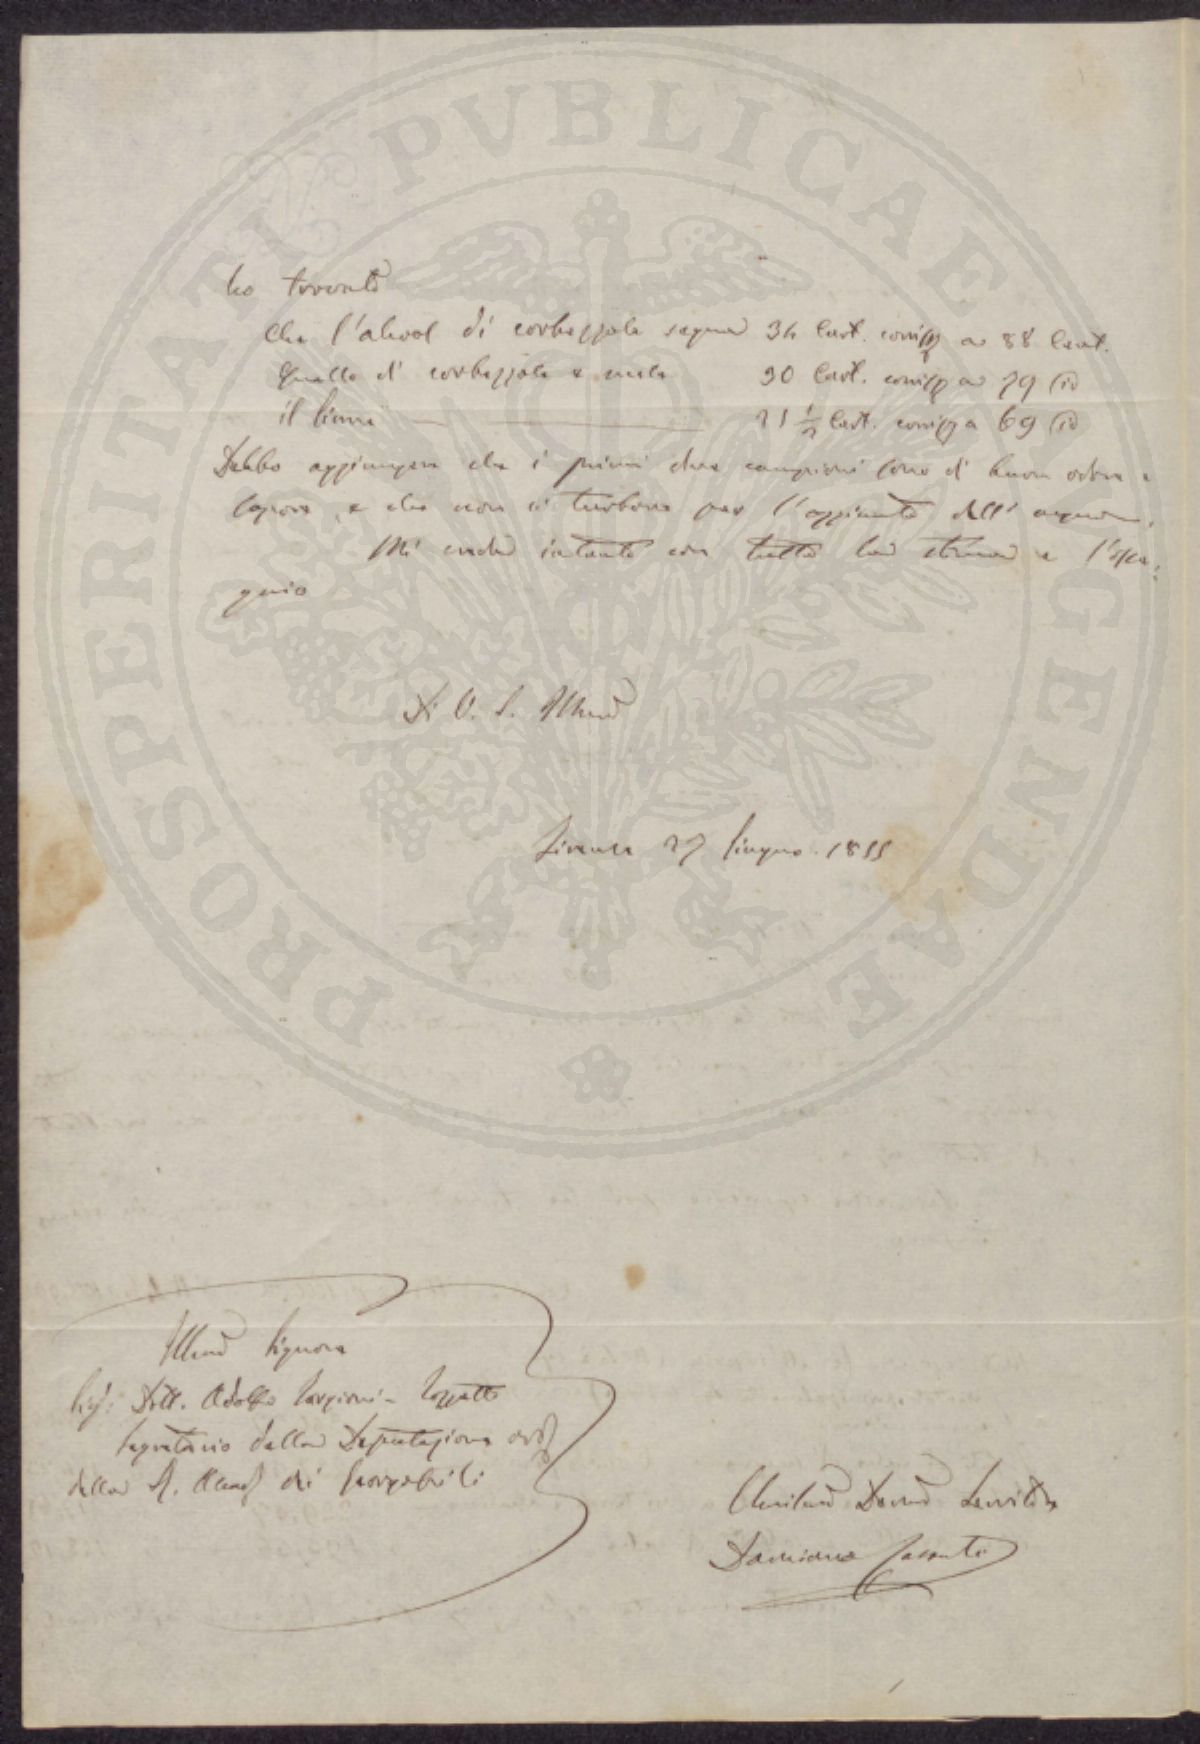 PROSPERITATI PUBLICAE AUGENDAE
ho trovato
Che l'alcool di corbezzole segna 34 Cart. corrisp a 88 Cent.
Quello di corbezzole e mele 30 Cart. corrisp a 79 id
il 21 1/2 Cart. corrisp a 69 id
Debbo aggiungere che i primi due campioni sono di buon odore e
sapore, e che non si turbano per l'aggiunta dell' acqua.
Mi creda intanto con tutta la stima e l'osse-
quio
Di V. S. Illma
Firenze 27 Giugno 1855
Illmo Signore
Sig: Dott. Adolfo Targioni-Tozzetti
Segretario della Deputazione ord
della R. Accad dei Georgofili
Umilmo Devmo Servitore
Damiano Casanti